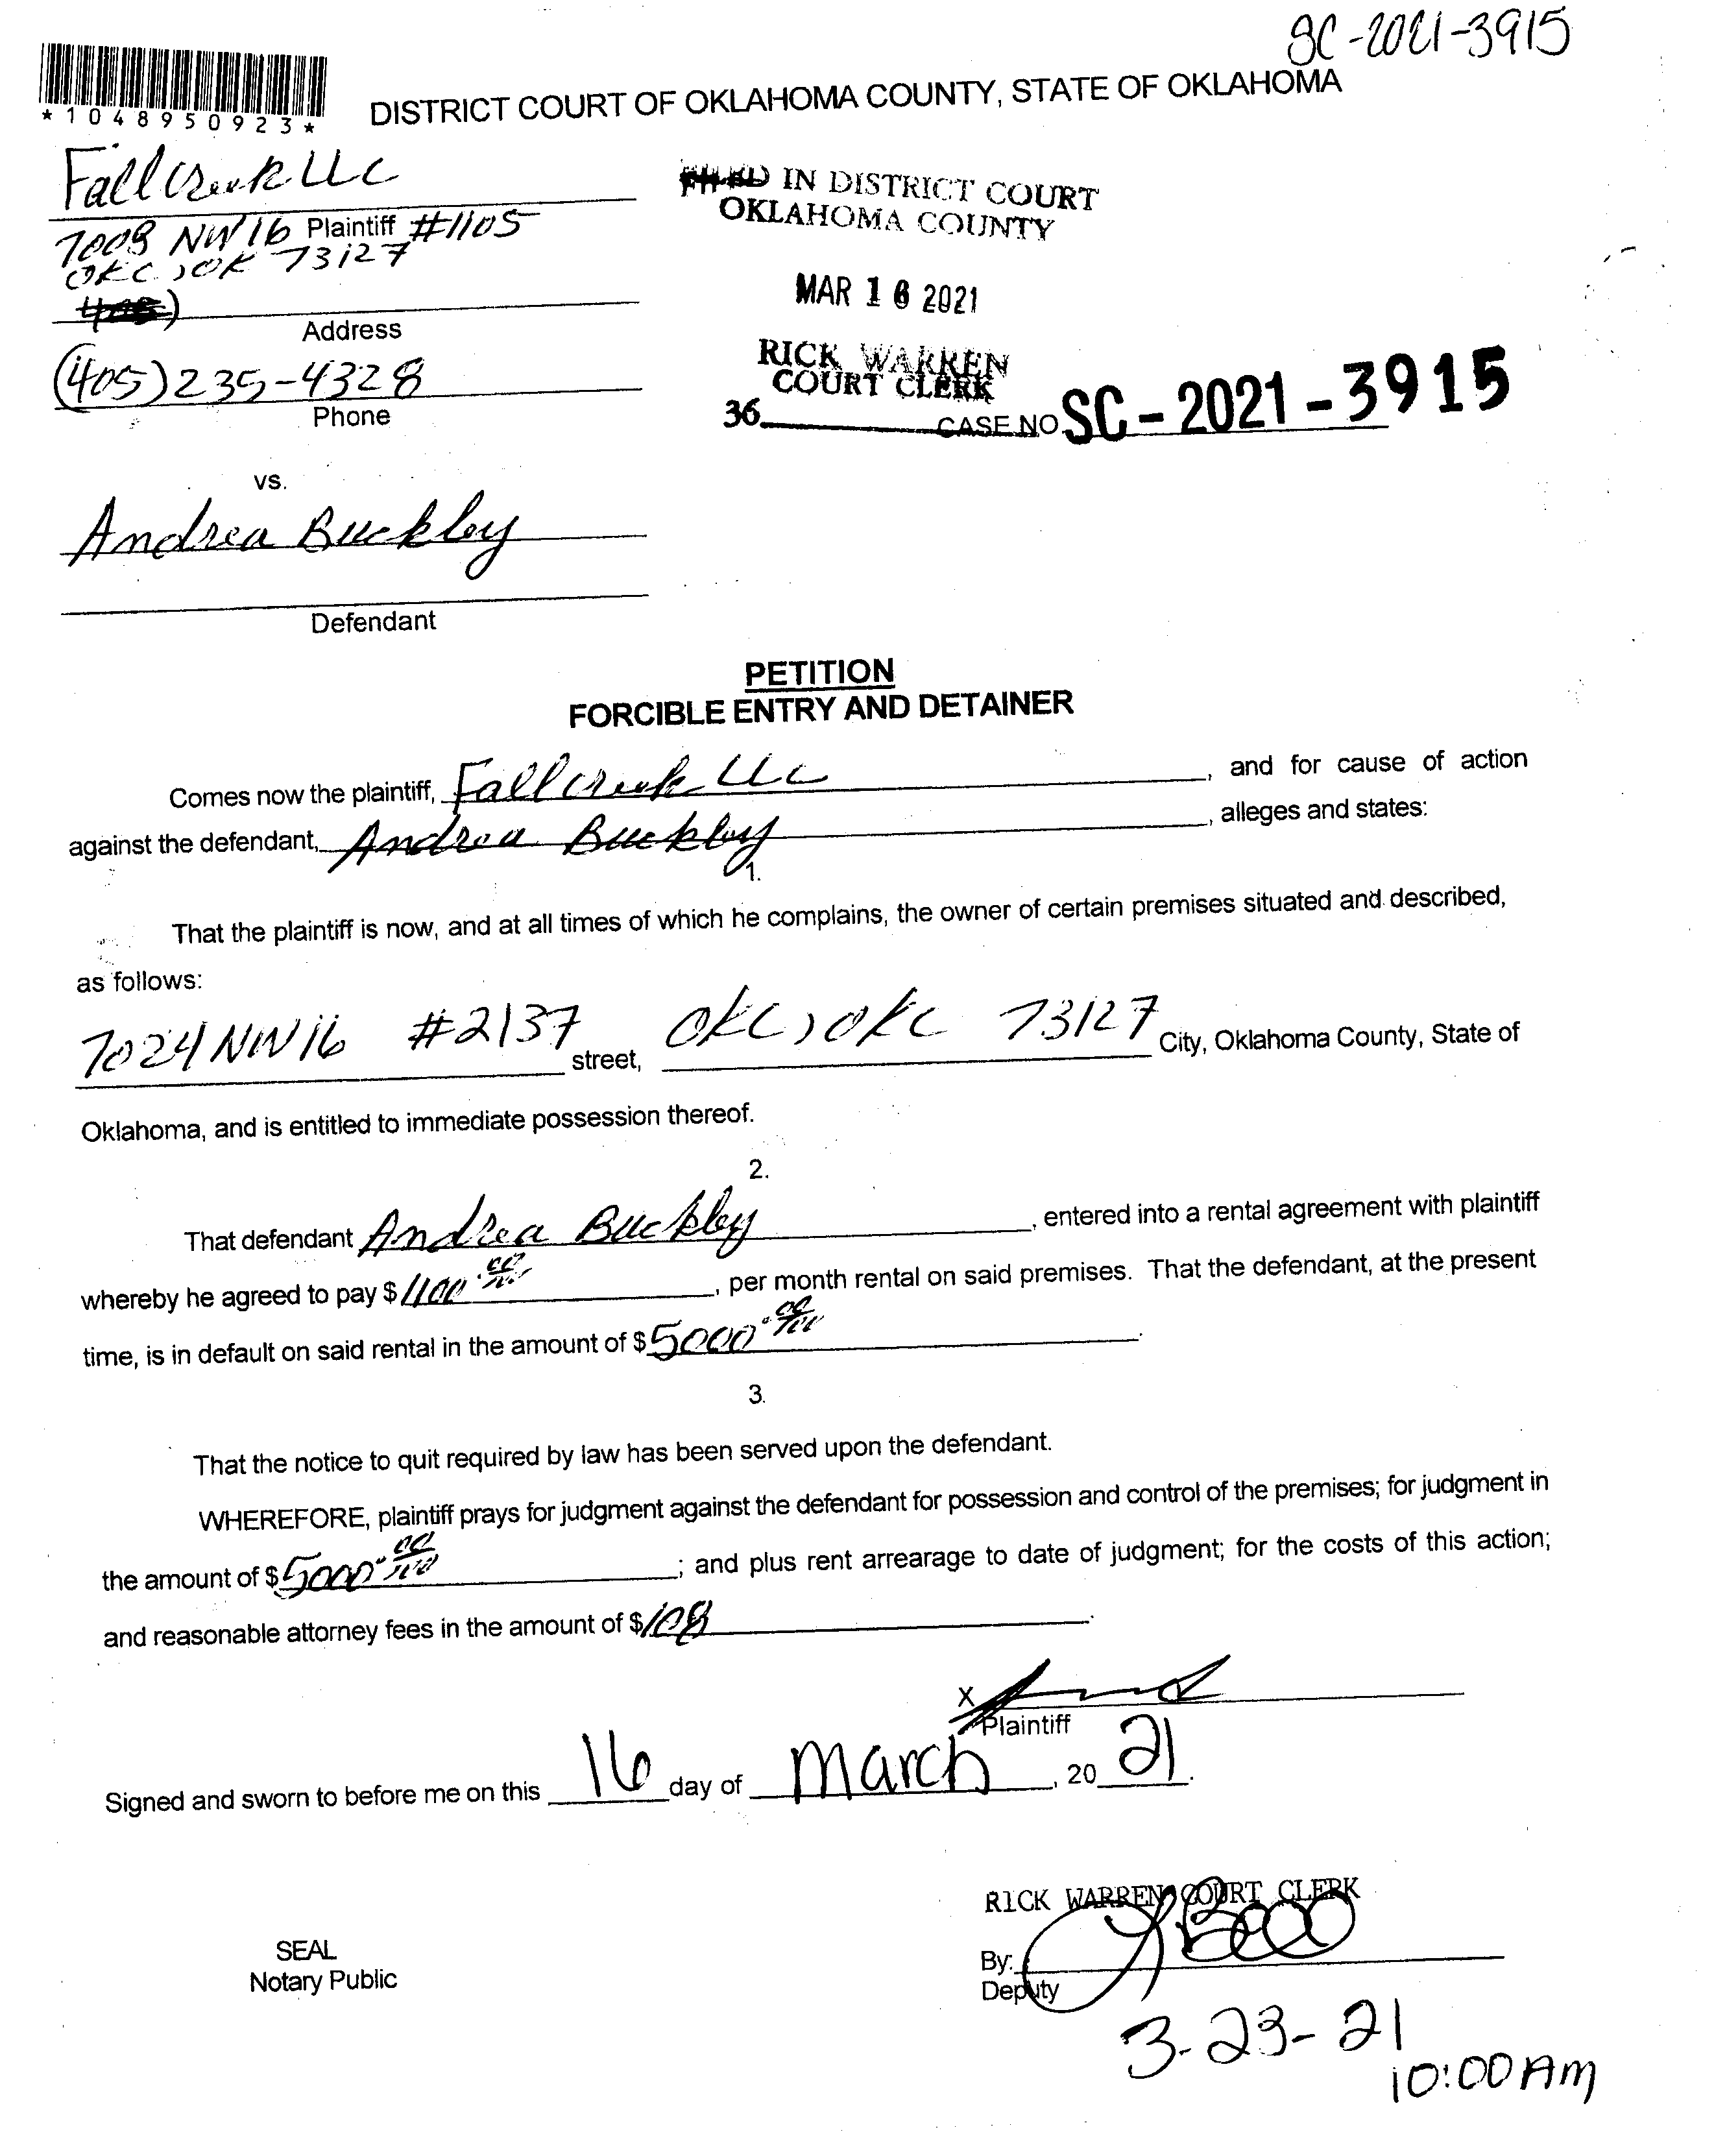 SC-2021-3915
*1048950923*
DISTRICT COURT OF OKLAHOMA COUNTY, STATE OF OKLAHOMA
Fall Creek LLC
Plaintiff
7008 NW 16 #1105
OKC, OK 73127
FILED IN DISTRICT COURT
OKLAHOMA COUNTY
MAR 16 2021
RICK WARREN
COURT CLERK
36
Address
(405) 235-4328
Phone
CASE NO SC-2021-3915
vs.
Andrea Buckley
Defendant
PETITION
FORCIBLE ENTRY AND DETAINER
Comes now the plaintiff, Fall Creek LLC, and for cause of action
against the defendant, Andrea Buckley, alleges and states:
1.
That the plaintiff is now, and at all times of which he complains, the owner of certain premises situated and described,
as follows:
7024 NW 16 #2137 street, OKC, OKC 73127 City, Oklahoma County, State of
Oklahoma, and is entitled to immediate possession thereof.
2.
That defendant Andrea Buckley, entered into a rental agreement with plaintiff
whereby he agreed to pay $1100.00/100, per month rental on said premises. That the defendant, at the present
time, is in default on said rental in the amount of $5000.00/100.
3.
That the notice to quit required by law has been served upon the defendant.
WHEREFORE, plaintiff prays for judgment against the defendant for possession and control of the premises; for judgment in
the amount of $5000.00/100; and plus rent arrearage to date of judgment; for the costs of this action;
and reasonable attorney fees in the amount of $108.
X
Plaintiff
Signed and sworn to before me on this 16 day of March, 2021.
RICK WARREN COURT CLERK
SEAL
Notary Public
By:
Deputy
3-23-21
10:00 AM